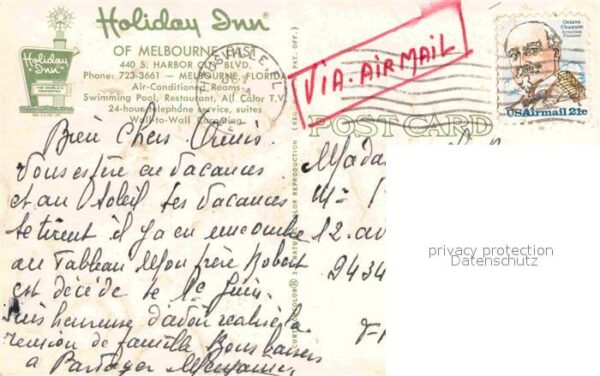 Holiday Inn
OF MELBOURNE
440 S. HARBOR CITY BLVD.
Phone: 723-3661 — MELBOURNE, FLORIDA
Air-Conditioned Rooms
Swimming Pool, Restaurant, All Color T.V.
24-hour telephone service, suites
Wall-to-Wall Carpeting
Holiday Inn
VIA. AIRMAIL
Octave Chanute
Aviation Pioneer
USAirmail 21c
POST CARD
Bien Chers Amis.
Vous être en Vacances
et au Soleil les Vacances
se tirent il y a eu encombre
au Tableau Mon frère Robert
est décédé le 1er Juin.
Suis heureuse d'avoir realisé la
reunion de famille Bons baisers
a Partager
Mada
M
12. av
9434
F
privacy protection
Datenschutz